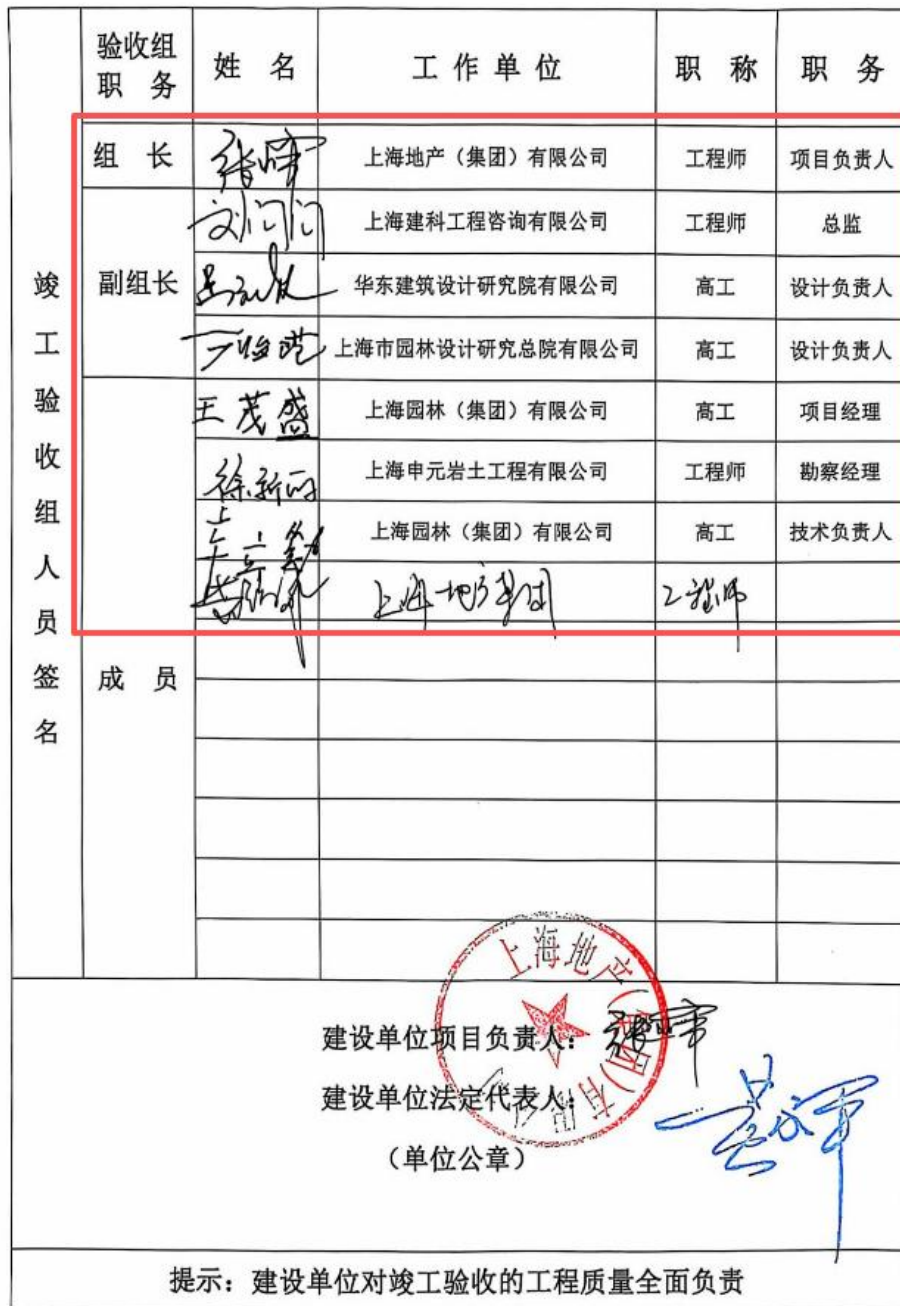 验收组 职 务 姓 名 工 作 单 位 职 称 职 务
竣工验收组人员签名
组 长 上海地产（集团）有限公司 工程师 项目负责人
副组长
刘们们 上海建科工程咨询有限公司 工程师 总监
华东建筑设计研究院有限公司 高工 设计负责人
上海市园林设计研究总院有限公司 高工 设计负责人
王茂盛 上海园林（集团）有限公司 高工 项目经理
徐新 上海申元岩土工程有限公司 工程师 勘察经理
上海园林（集团）有限公司 高工 技术负责人
上海地产集团 工程师
成 员
上海地产（集团）有限公司
建设单位项目负责人：
建设单位法定代表人：
（单位公章）
提示：建设单位对竣工验收的工程质量全面负责